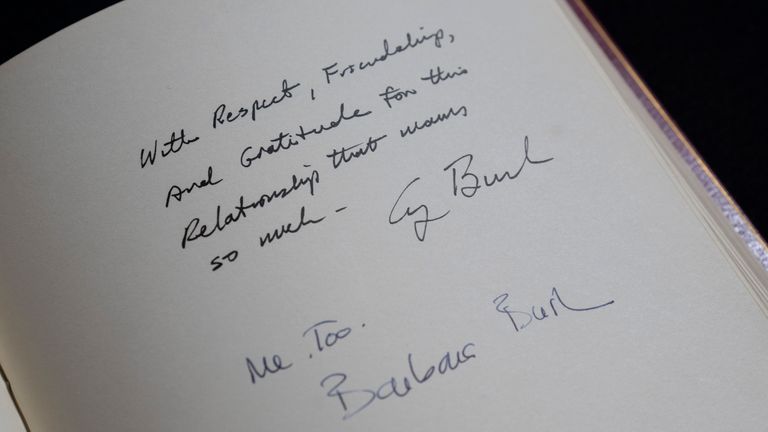 With Respect, Friendship,
And Gratitude for this
Relationship that means
so much - Gy Bush
Me Too.
Barbara Bush